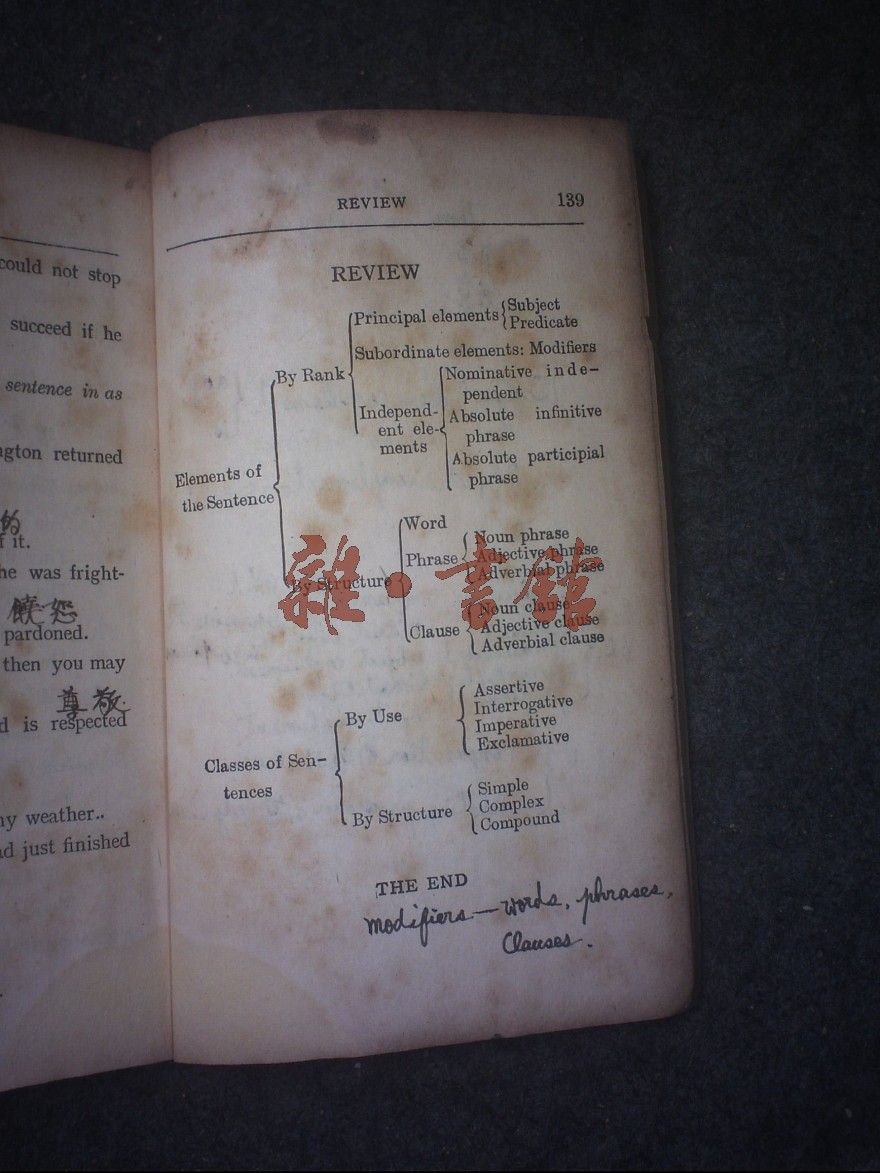 could not stop
succeed if he
sentence in as
returned
的
it.
he was fright-
饒恕
pardoned.
then you may
尊敬
is respected
weather..
just finished
REVIEW 139
REVIEW
Elements of
the Sentence
By Rank
Principal elements
Subject
Predicate
Subordinate elements: Modifiers
Independ-
ent ele-
ments
Nominative inde-
pendent
Absolute infinitive
phrase
Absolute participial
phrase
By Structure
Word
Phrase
Noun phrase
Adjective phrase
Adverbial phrase
Clause
Noun clause
Adjective clause
Adverbial clause
Classes of Sen-
tences
By Use
Assertive
Interrogative
Imperative
Exclamative
By Structure
Simple
Complex
Compound
THE END
modifiers — words, phrases,
Clauses.
雜·書館